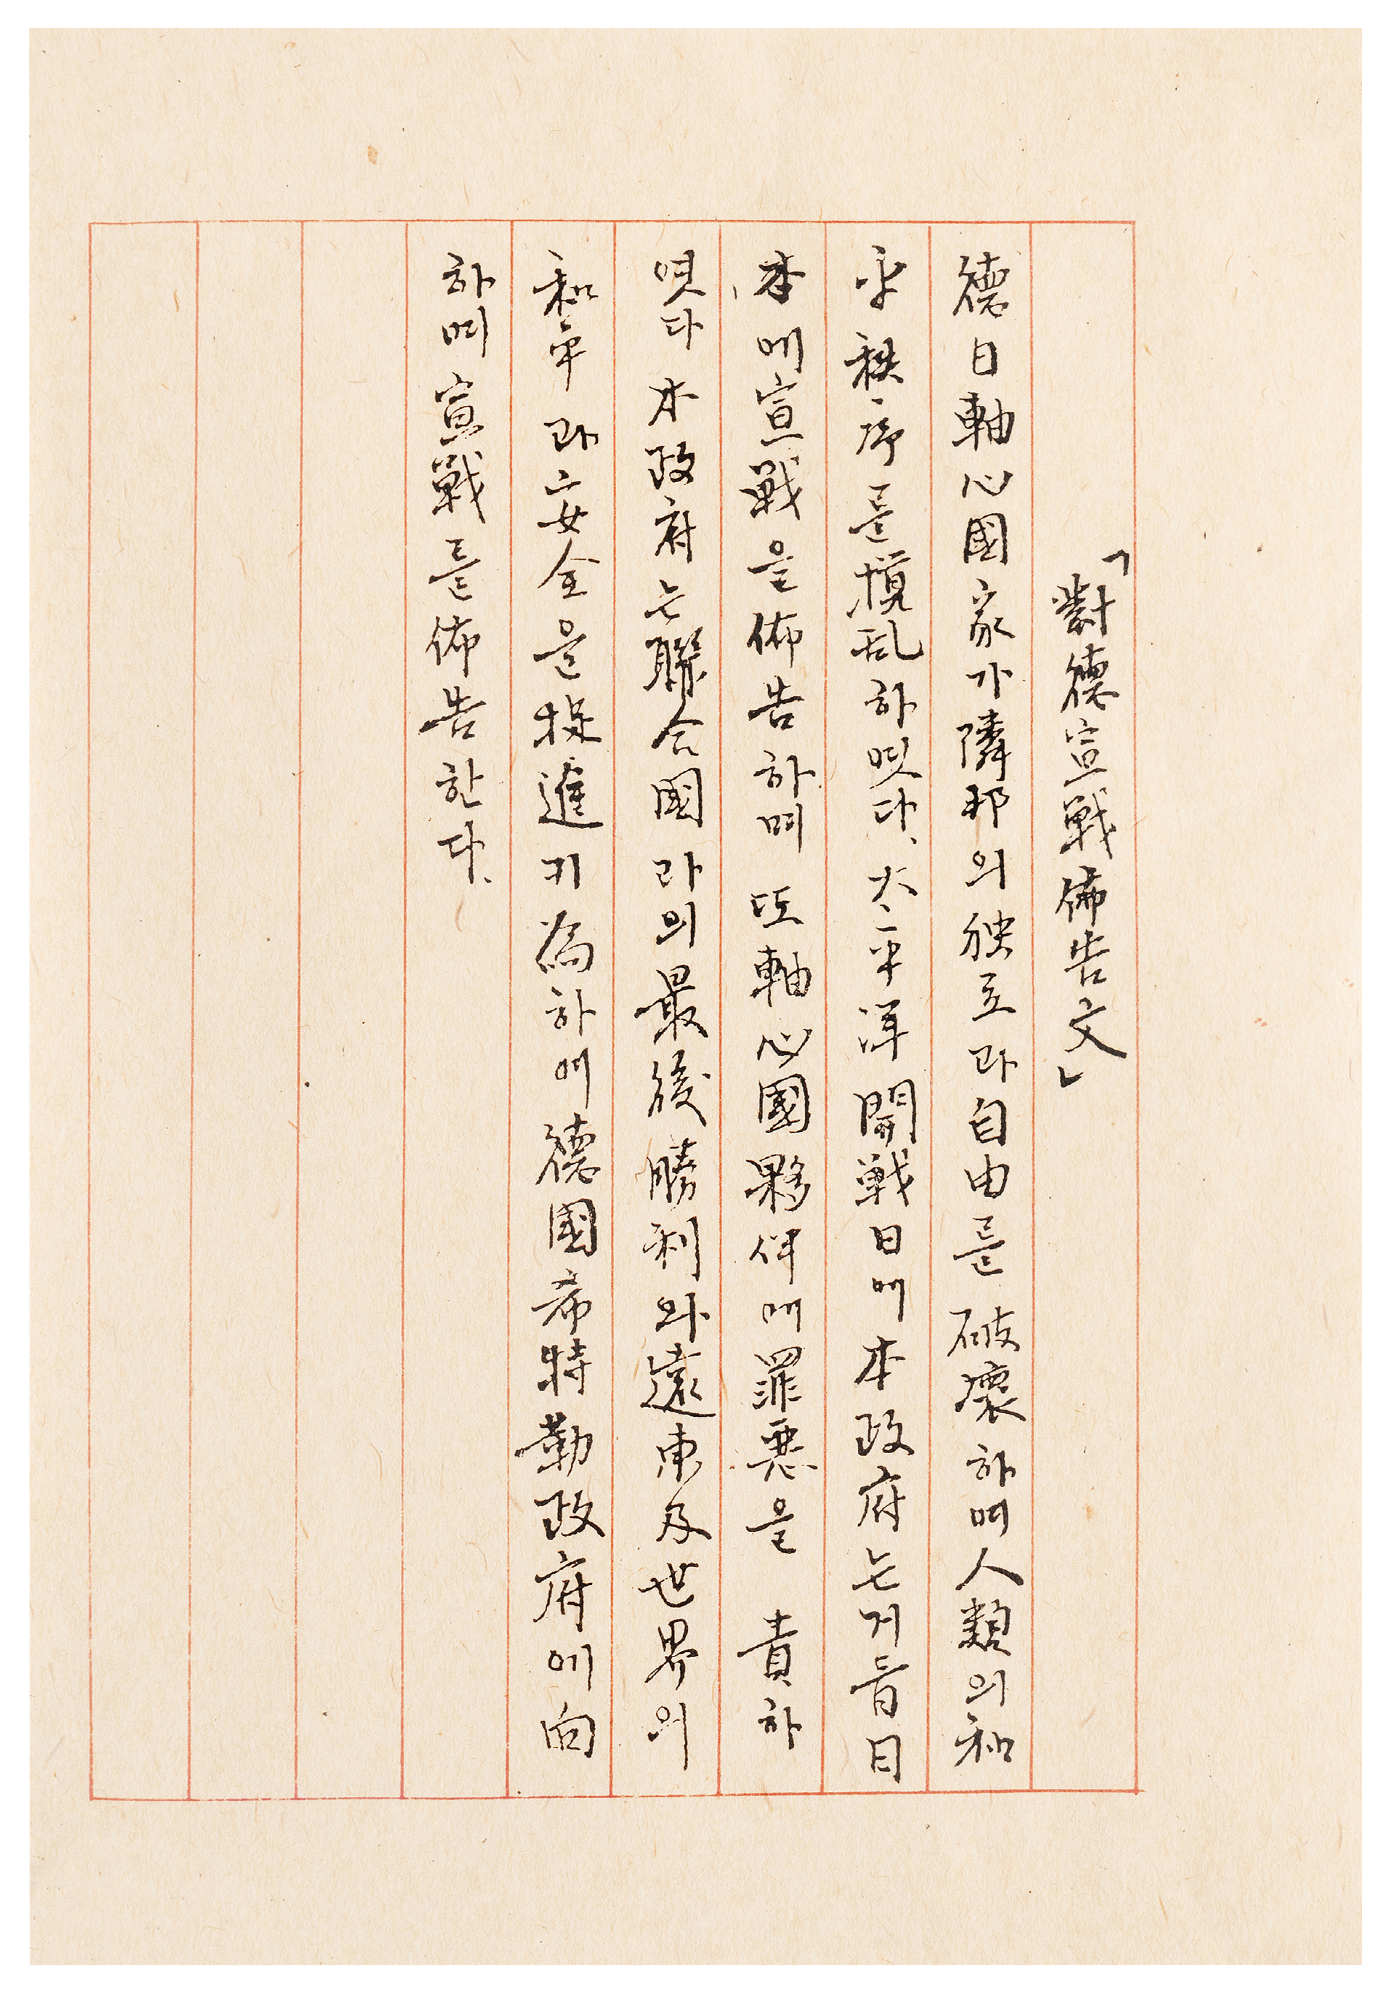 「對德宣戰佈告文」
德日軸心國家가隣邦의独立과自由를破壞하며人類의和
平秩序를攪乱하였다、太平洋開戰日에本政府는거듭日
本에宣戰을佈告하며또軸心國夥伴에罪惡을責하
였다本政府는聯合國과의最後勝利와遠東及世界의
和平과安全을促進키爲하여德國希特勒政府에向
하며宣戰를佈告한다、